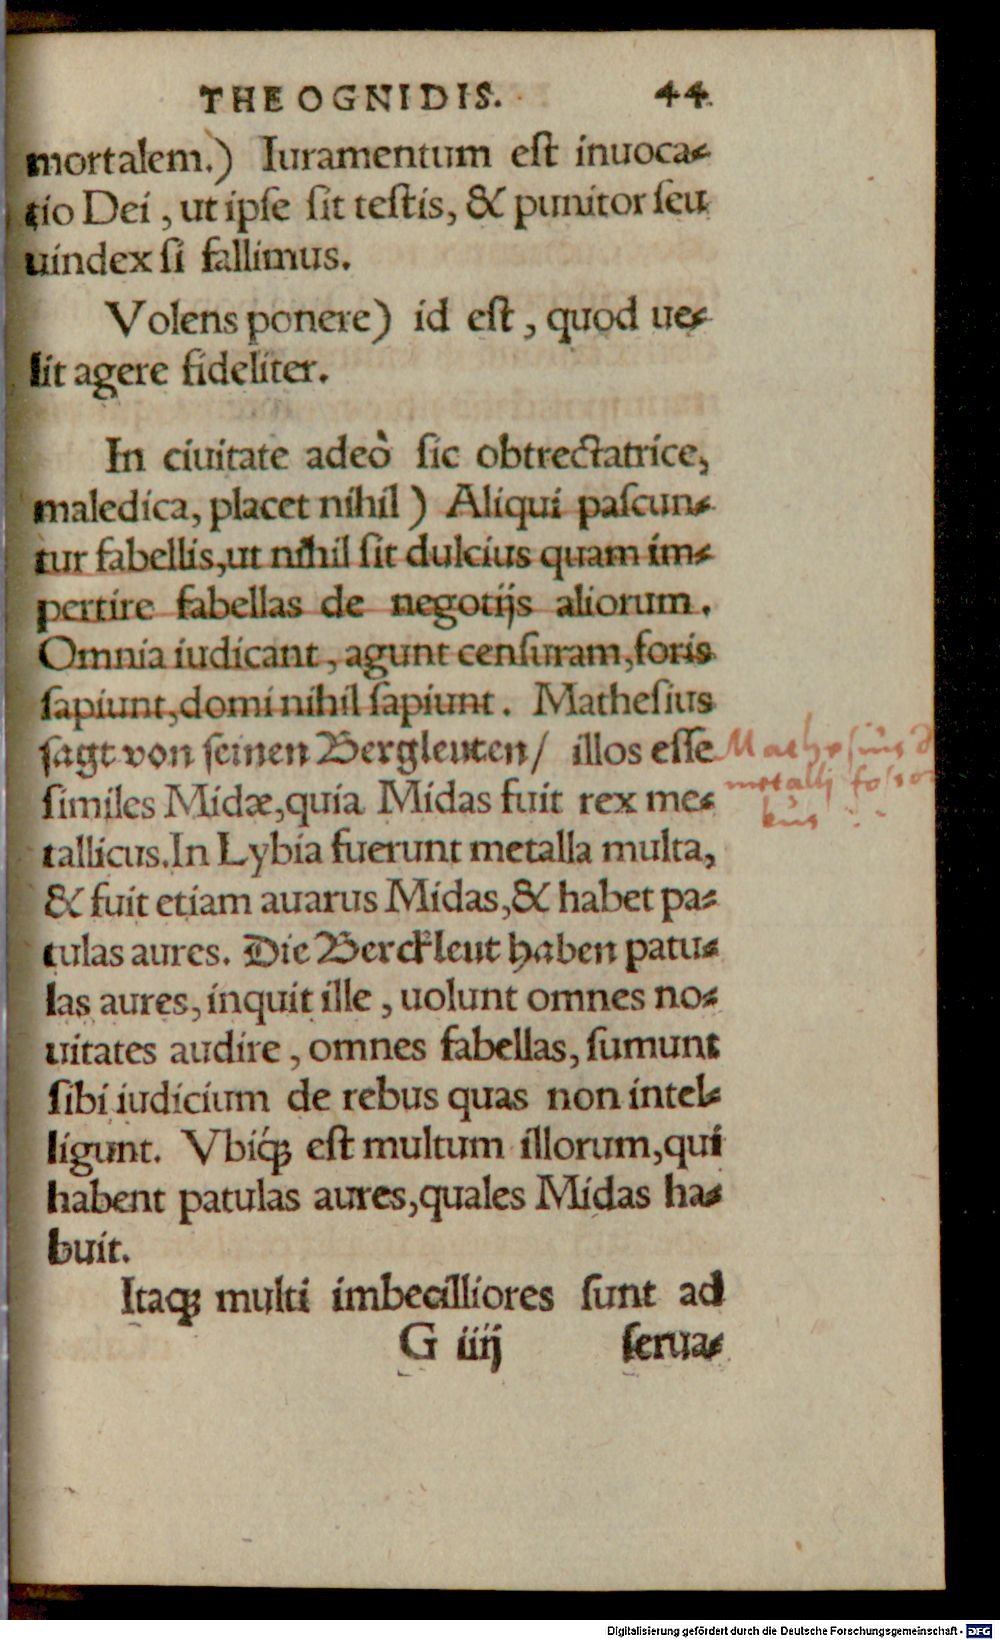 THEOGNIDIS. 44.
mortalem.) Iuramentum est inuoca-
tio Dei, ut ipse sit testis, & punitor seu
uindex si fallimus.
Volens ponere) id est, quod ue-
lit agere fideliter.
In ciuitate adeò sic obtrectatrice,
maledica, placet nihil) Aliqui pascun-
tur fabellis, ut nihil sit dulcius quam im-
pertire fabellas de negotijs aliorum.
Omnia iudicant, agunt censuram, foris
sapiunt, domi nihil sapiunt. Mathesius
sagt von seinen Bergleuten/ illos esse
similes Midæ, quia Midas fuit rex me-
tallicus. In Lybia fuerunt metalla multa,
& fuit etiam auarus Midas, & habet pa-
tulas aures. Die Berckleut haben patu-
las aures, inquit ille, uolunt omnes no-
uitates audire, omnes fabellas, sumunt
sibi iudicium de rebus quas non intel-
ligunt. Vbiq́; est multum illorum, qui
habent patulas aures, quales Midas ha-
buit.
Itaq; multi imbecilliores sunt ad
G iiij serua-
Mathesius
metalli fosso
bus
Digitalisierung gefördert durch die Deutsche Forschungsgemeinschaft - DFG